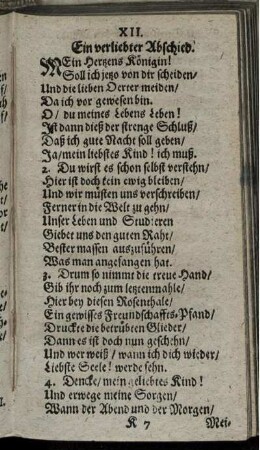 XII.
Ein verliebter Abschied.
MEin Hertzens Königin!
Soll ich jetzo von dir scheiden/
Und die lieben Oerter meiden/
Da ich vor gewesen bin.
O/ du meines Lebens Leben!
Ist dann dieß der strenge Schluß/
Daß ich gute Nacht soll geben/
Ja/ mein liebstes Kind! ich muß.
2. Du wirst es schon selbst verstehn/
Hier ist doch kein ewig bleiben/
Und wir müsten uns verschreiben/
Ferner in die Welt zu gehn/
Unser Leben und Studieren
Giebet uns den guten Raht/
Bester massen auszuführen/
Was man angefangen hat.
3. Drum so nimmt die treue Hand/
Gib ihr noch zum letztenmahle/
Hier bey diesen Rosenthale/
Ein gewisses Freundschaffts-Pfand/
Drucke die betrübten Glieder/
Dann es ist doch nun geschehn/
Und wer weiß/ wann ich dich wieder/
Liebste Seele! werde sehn.
4. Dencke/ mein geliebtes Kind!
Und erwege meine Sorgen/
Wann der Abend und der Morgen/
K 7 Mei-